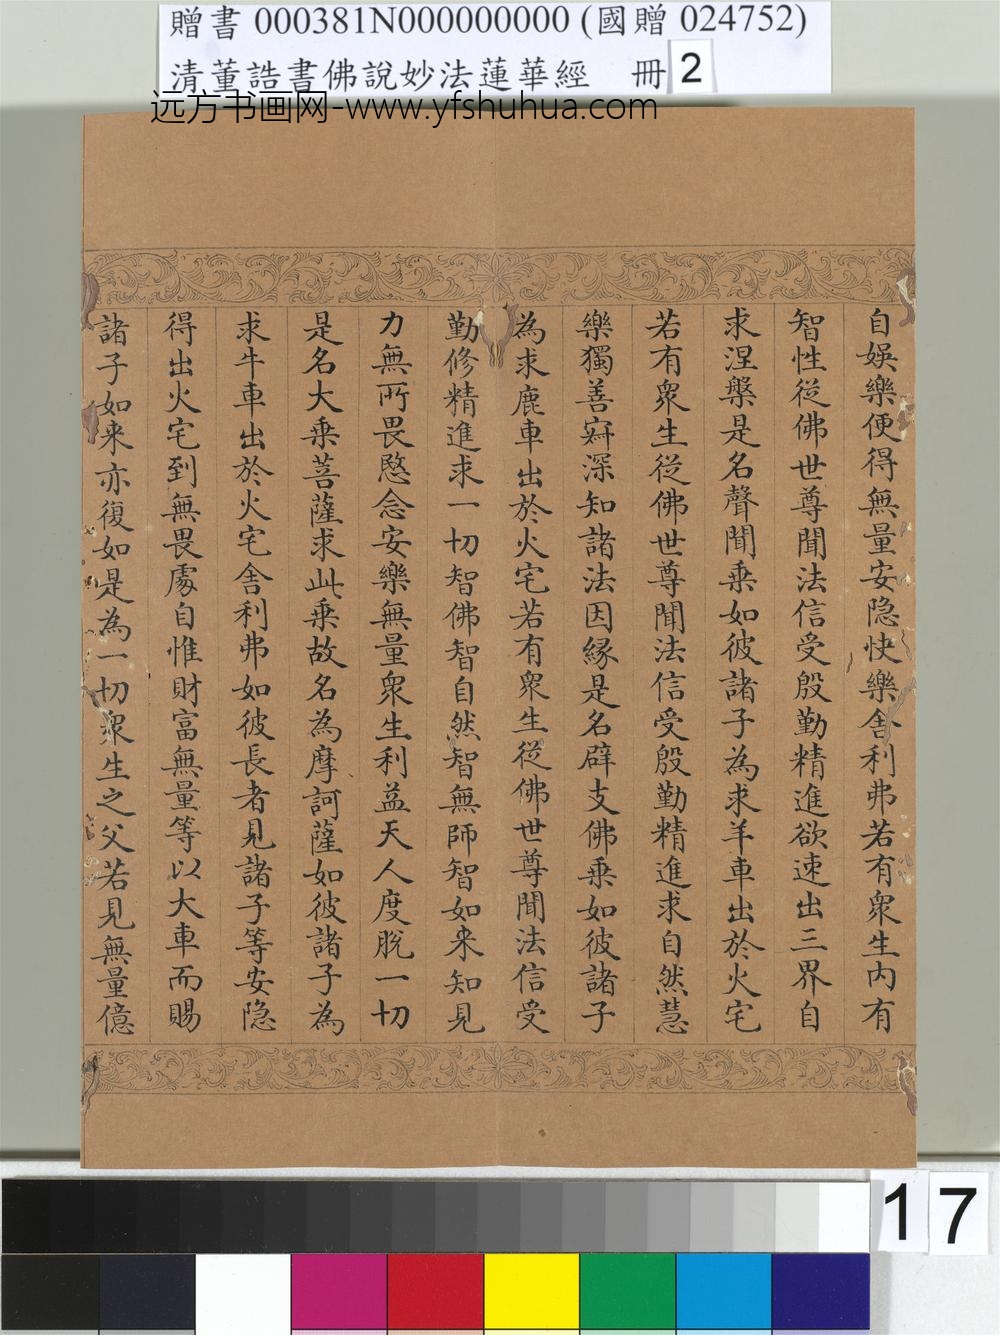 贈書 000381N000000000 (國贈 024752)
清董誥書佛說妙法蓮華經 冊 2
远方书画网-www.yfshuhua.com
自娛樂便得無量安隐快樂舎利弗若有衆生内有
智性從佛世尊聞法信受殷勤精進欲速出三界自
求涅槃是名聲聞乗如彼諸子為求羊車出於火宅
若有衆生從佛世尊聞法信受殷勤精進求自然慧
樂獨善寂深知諸法因緣是名辟支佛乗如彼諸子
為求鹿車出於火宅若有衆生從佛世尊聞法信受
勤修精進求一切智佛智自然智無師智如来知見
力無所畏愍念安樂無量衆生利益天人度脫一切
是名大乗菩薩求此乗故名為摩訶薩如彼諸子為
求牛車出於火宅舎利弗如彼長者見諸子等安隐
得出火宅到無畏處自惟財富無量等以大車而賜
諸子如来亦復如是為一切衆生之父若見無量億
17